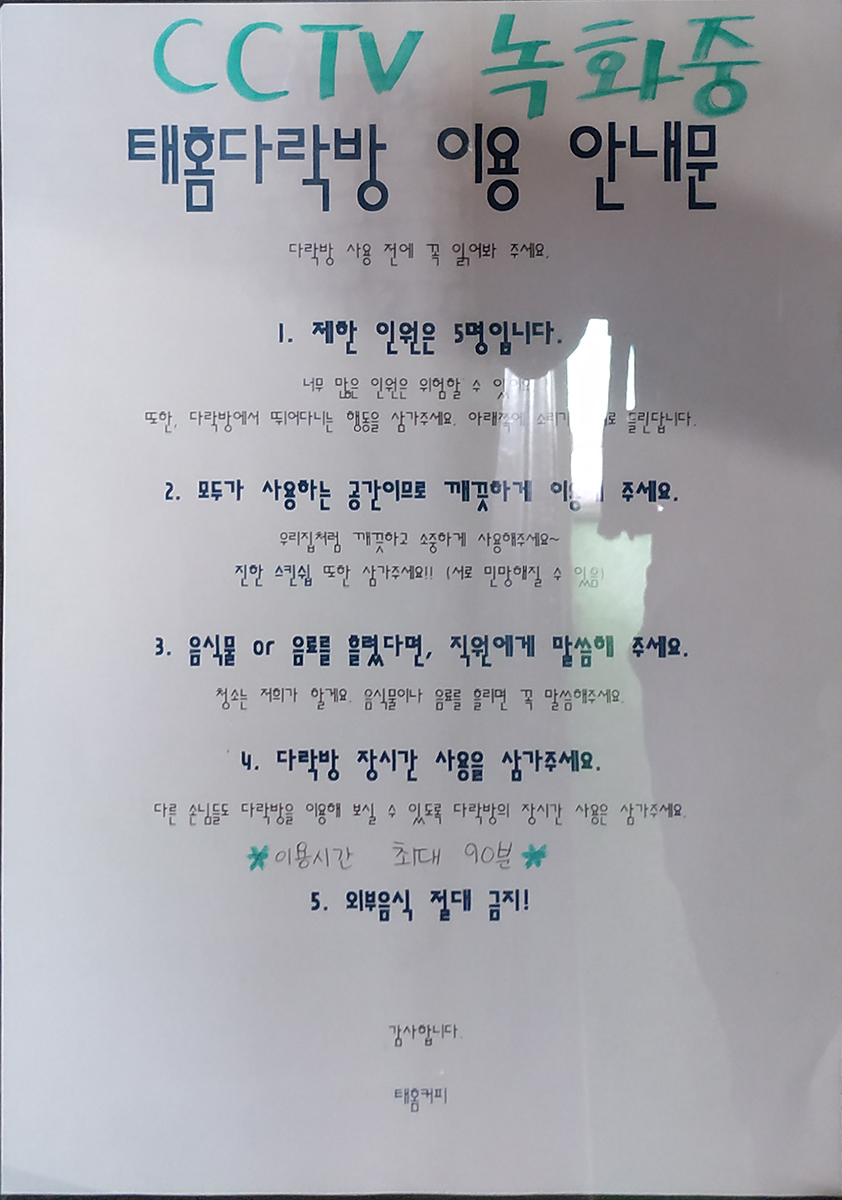 CCTV 녹화중
태홈다락방 이용 안내문
다락방 사용 전에 꼭 읽어봐 주세요.
1. 제한 인원은 5명입니다.
너무 많은 인원은 위험할 수
또한, 다락방에서 뛰어다니는 행동을 삼가주세요. 아래쪽에 들린답니다.
2. 모두가 사용하는 공간이므로 깨끗하게 주세요.
우리집처럼 깨끗하고 소중하게 사용해주세요~
진한 스킨쉽 또한 삼가주세요!! (서로 민망해질 수 있음)
3. 음식물 or 음료를 흘렸다면, 직원에게 말씀해 주세요.
청소는 저희가 할게요. 음식물이나 음료를 흘리면 꼭 말씀해주세요.
4. 다락방 장시간 사용을 삼가주세요.
다른 손님들도 다락방을 이용해 보실 수 있도록 다락방의 장시간 사용은 삼가주세요.
*이용시간 최대 90분*
5. 외부음식 절대 금지!
감사합니다.
태홈커피